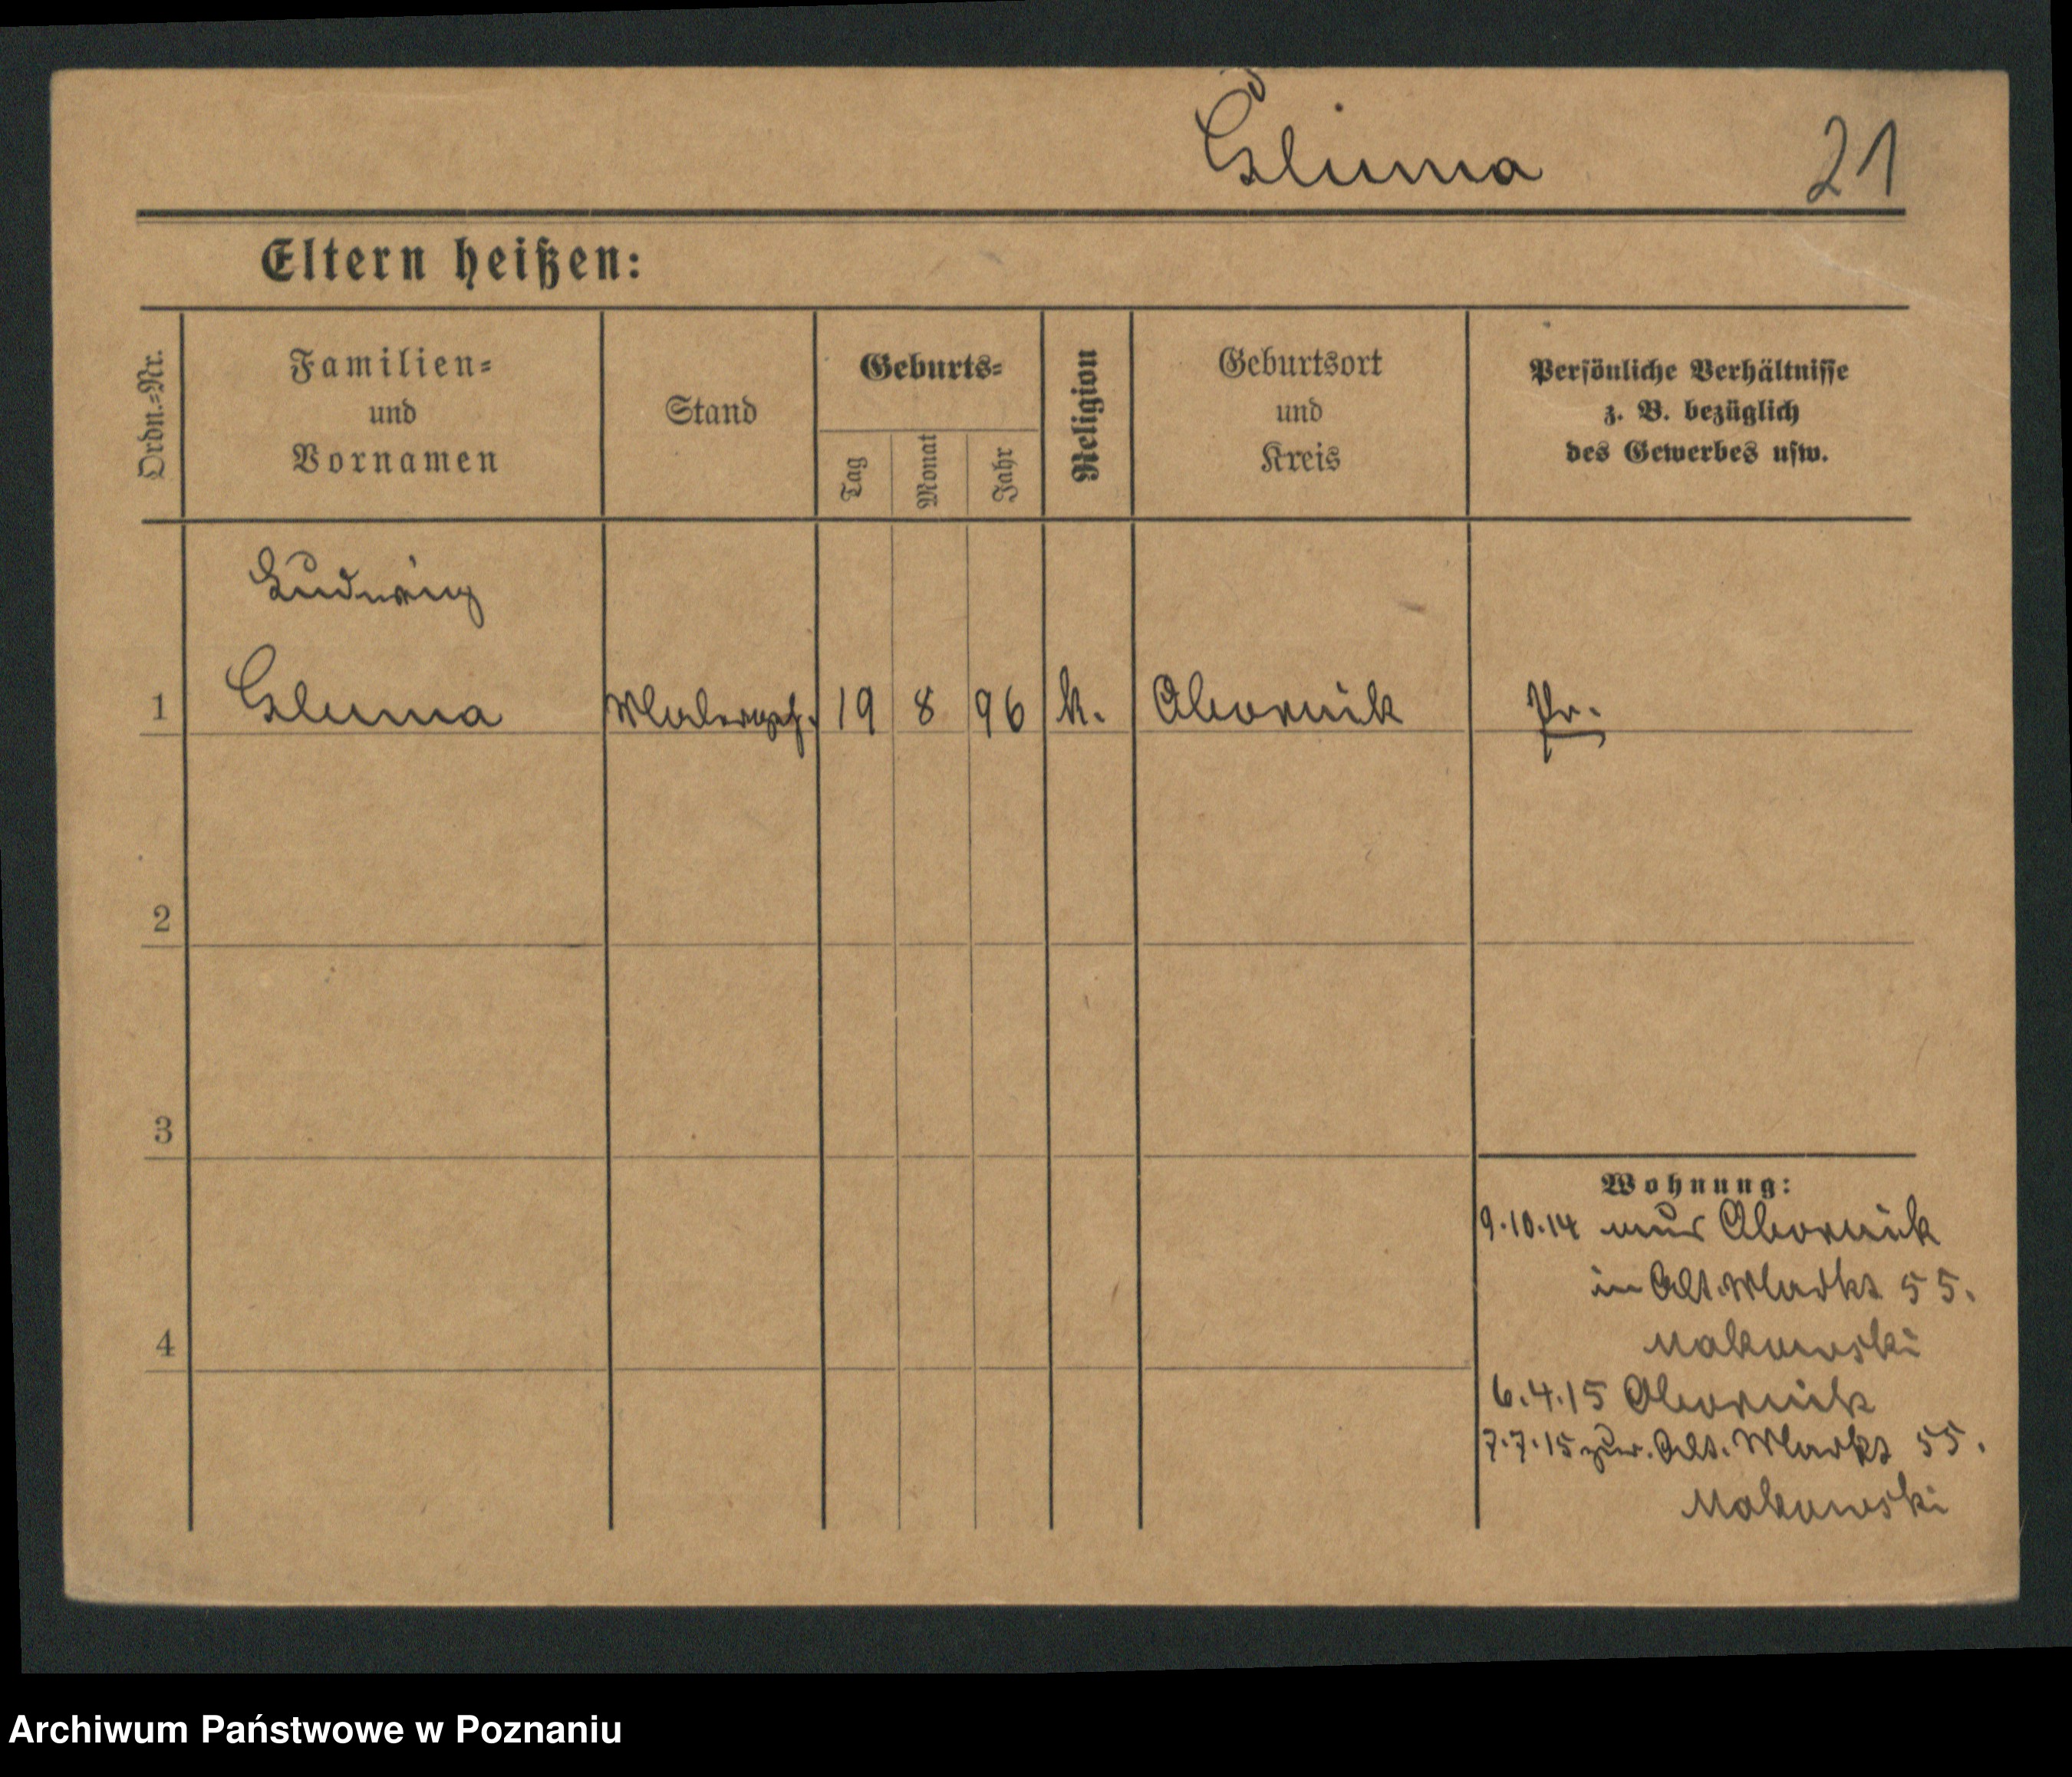 Gluma
21
Eltern heißen:
Ordn.=Nr.
Familien=
und
Vornamen
Stand
Geburts=
Tag
Monat
Jahr
Religion
Geburtsort
und
Kreis
Persönliche Verhältnisse
z. B. bezüglich
des Gewerbes usw.
Ludwig
1 Gluma Malergeh. 19 8 96 k. Obornik Pr.
2
3
4
Wohnung:
9.10.14 aus Obornik
in Alt. Markt 55.
Makowski
6.4.15 Obornik
7.7.15 zur. Alt. Markt 55.
Makowski
Archiwum Państwowe w Poznaniu